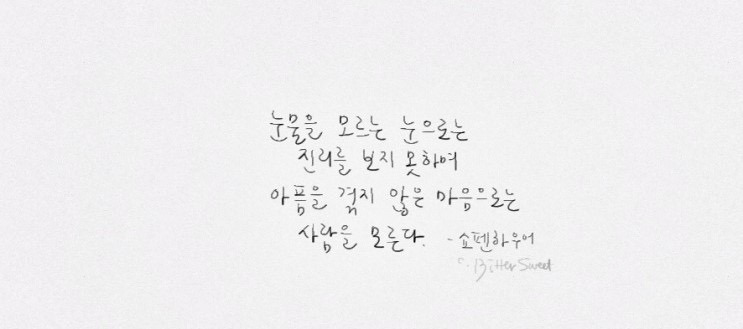 눈물을 모르는 눈으로는
진리를 보지 못하며
아픔을 겪지 않은 마음으로는
사람을 모른다. - 쇼펜하우어
c. Bitter Sweet